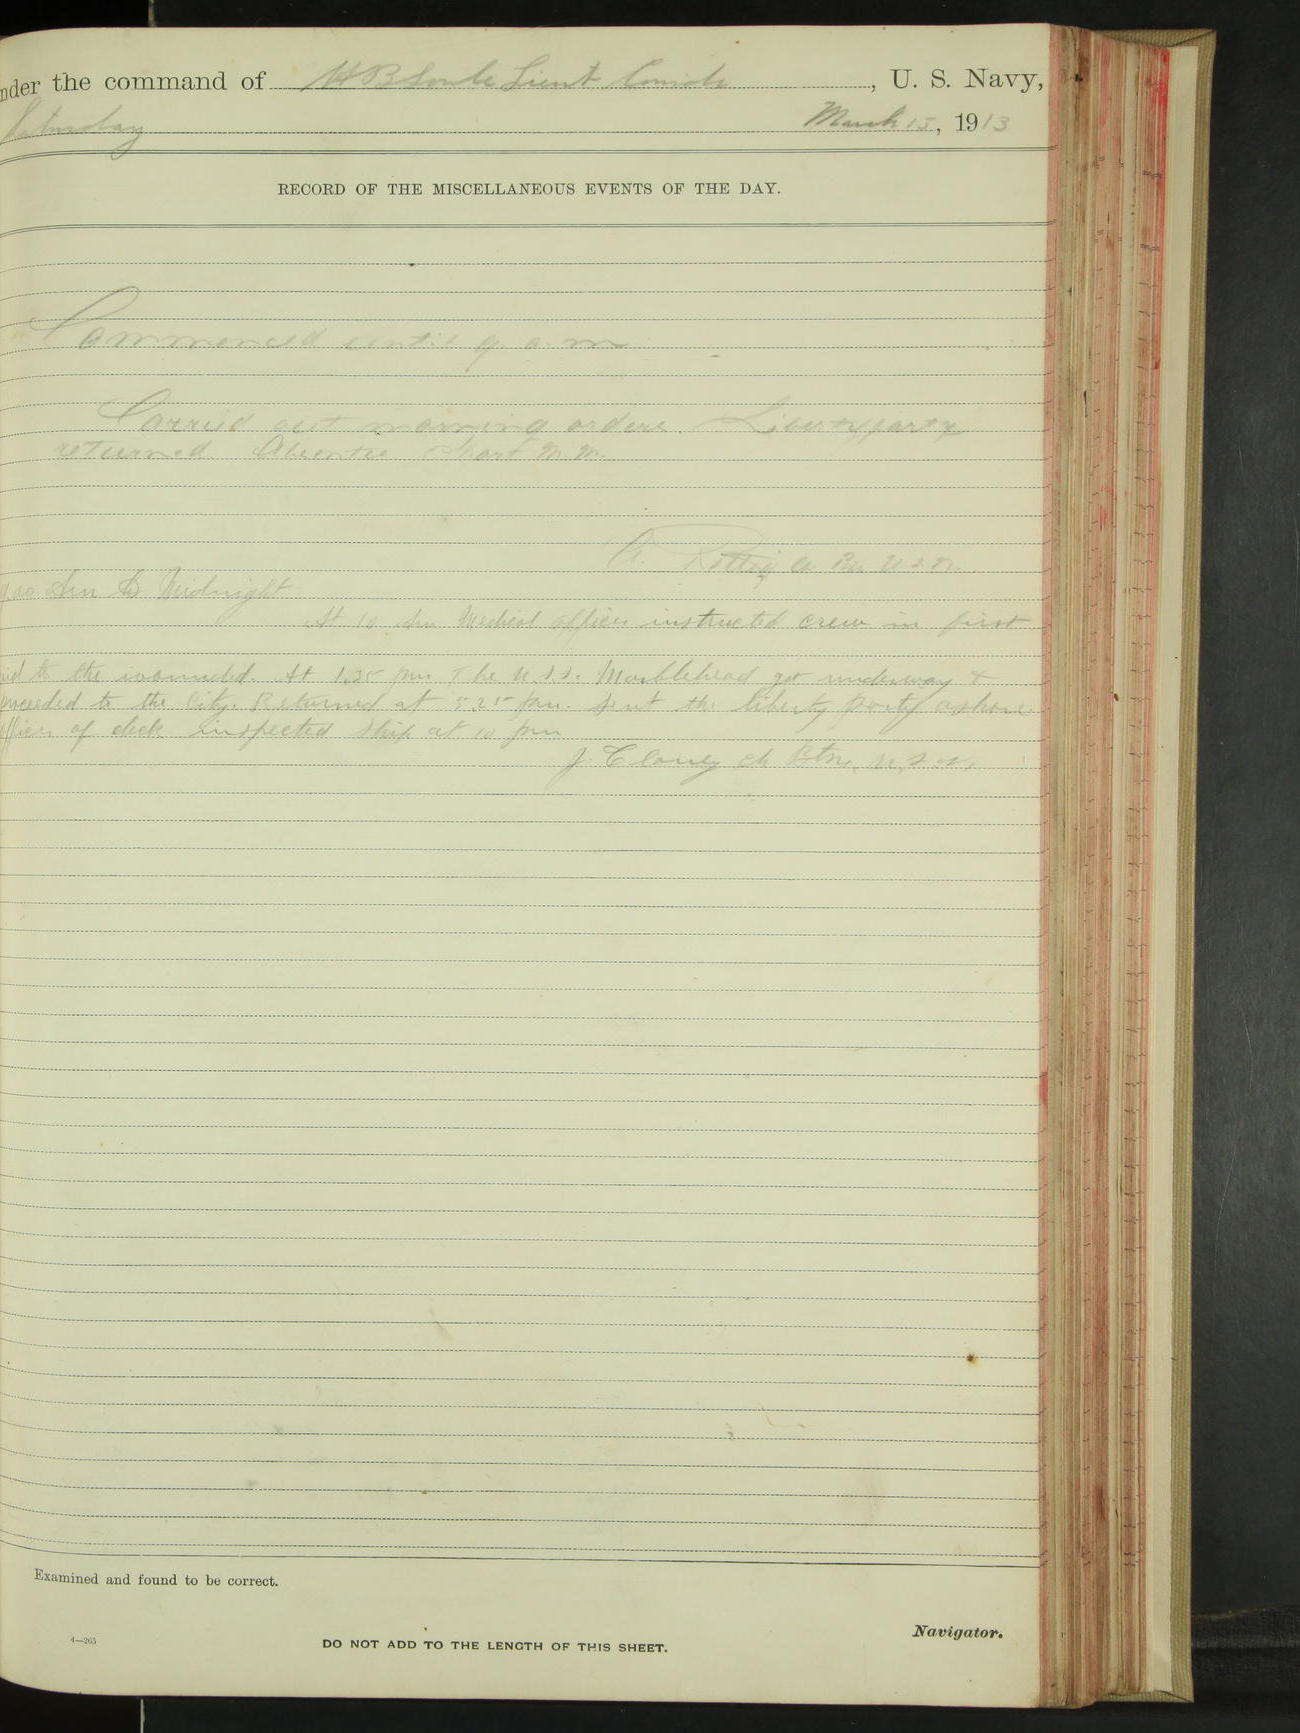 nder the command of H B Soule Lieut Comdr, U. S. Navy,
Saturday March 15, 1913
RECORD OF THE MISCELLANEOUS EVENTS OF THE DAY.
Commenced until 9 a. m
Carried out morning orders. Liberty party
returned. Absentee Short M. M.
A. Rettig U S N.
9.00 Am to Midnight
At 10 Am Medical officer instructed crew in first
aid to the wounded. At 1.35 pm The U.S.S. Marblehead got underway &
proceeded to the City. Returned at 5.25 pm. Sent the liberty party ashore.
officer of deck inspected ship at 10 pm
J. Clancy Ch Btn. U, S N,
Examined and found to be correct.
4—265
DO NOT ADD TO THE LENGTH OF THIS SHEET.
Navigator.